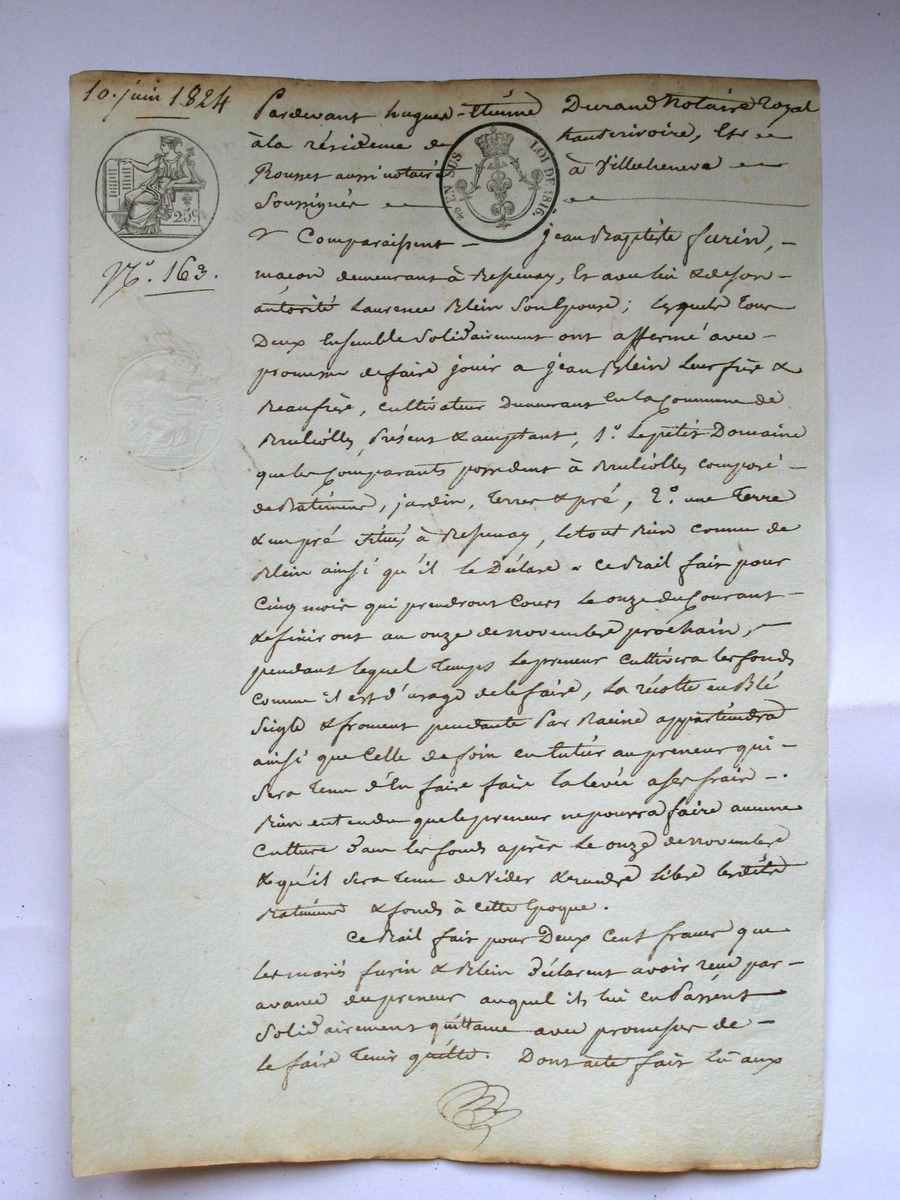 10. juin 1824
25c
N.° 163.
EN SUS
LOI DE 1816.
Pardevant hugues-Etienne Durand Notaire Royal
à la résidence de hauterivoire, Et
Rousset aussi notaire à Villecheneve
Soussignés
Comparaissent jean Baptiste furin,
maçon demeurant à Bessenay, Et avec lui & de son
autorité Laurence Blein Son Epouse; lesquels tous
Deux Ensemble Solidairement ont affermé avec
promesse de faire jouir a jean Blein leur frère &
Beaufrère, cultivateur Demeurant En la Commune de
Brulioles, Présent & acceptant, 1.° le petit Domaine
que les Comparants possedent à Brulioles composé
de Batiments, jardin, terres & pré, 2.° une terre
& un pré situés à Bessenay, le tout Bien connu de
Blein ainsi qu'il le Déclare. Ce Bail fait pour
Cinq mois qui prendront Cours le onze du Courant
& finiront au onze de novembre prochain,
pendant lequel temps le preneur cultivera les fonds
comme il est d'usage de le faire, la récolte en Blé
Seigle & froment pendante Par Racine appartiendra
ainsi que Celle de foin en entier au preneur qui
Sera tenu d'en faire faire la levée a ses frais.
Bien entendu que le preneur ne pourra faire aucune
Culture dans les fonds après le onze de novembre
& qu'il sera tenu de Vider & rendre libre lesdits
Batiments & fonds à cette Epoque.
Ce Bail fait pour Deux Cent francs que
les mariés furin & Blein Déclarent avoir reçu par
avance du preneur auquel ils lui en Passent
Solidairement quittance avec promesse de
le faire tenir quitte. Dont acte fait lu aux